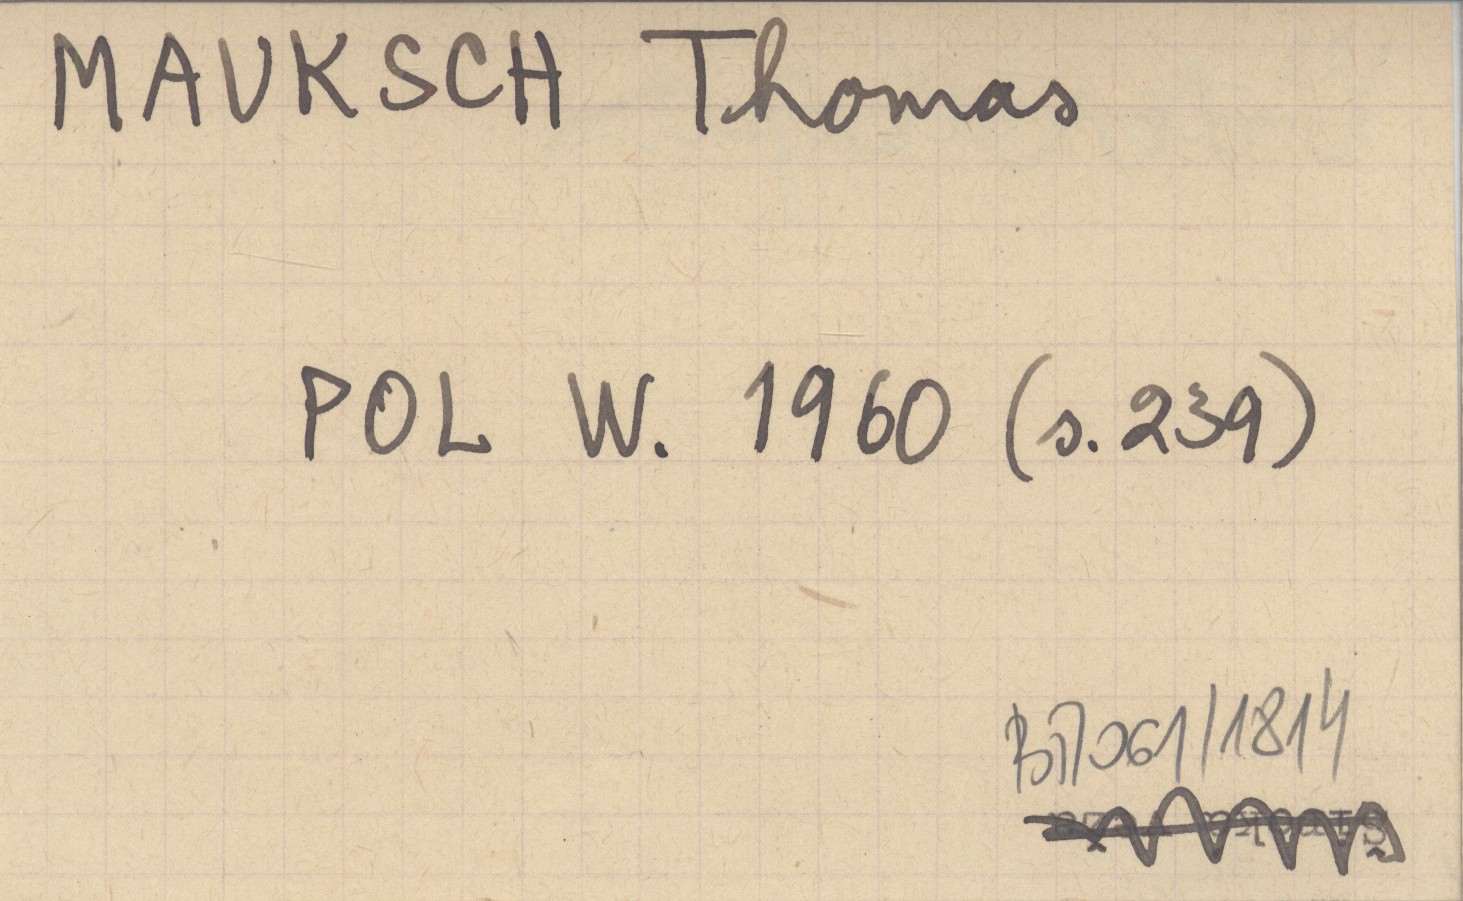 MAUKSCH Thomas
POL W. 1960 (s. 239)
/1814